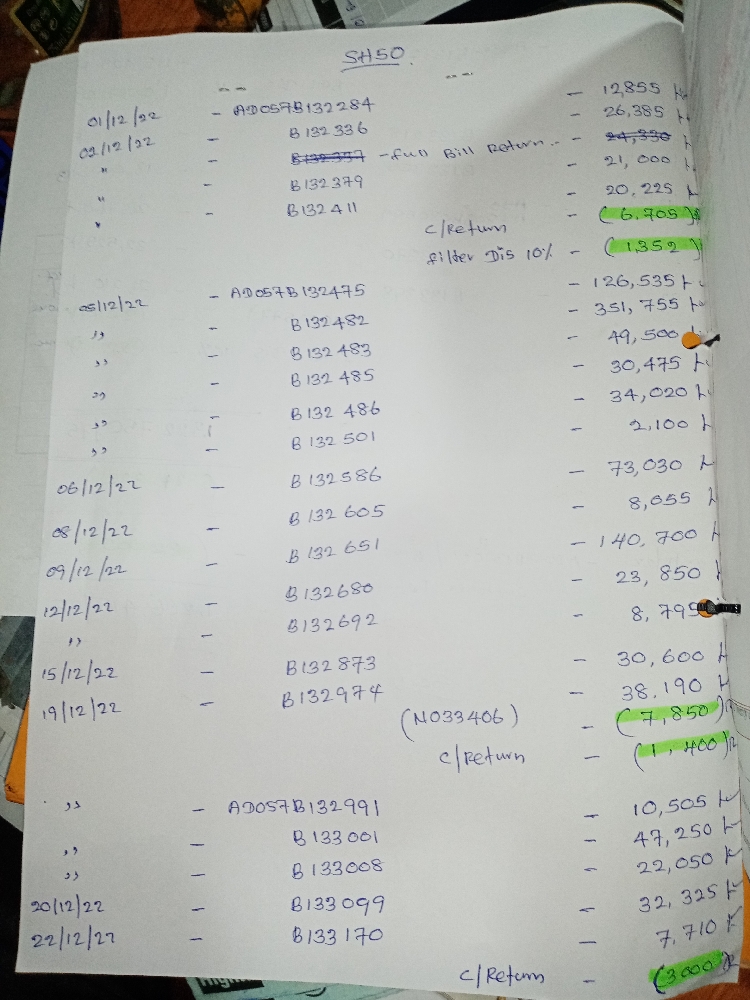 SH50.
01/12/22 - AD057B132284 - 12,855
02/12/22 - B132336 - 26,385
" - B132337 - full Bill Return.. - 24,330
" - B132379 - 21,000
" - B132411 - 20,225
C/Return - (6,705)
filter Dis 10% - (1,352)
05/12/22 - AD057B132475 - 126,535
" - B132482 - 351,755
" - B132483 - 49,500
" - B132485 - 30,475
" - B132486 - 34,020
" - B132501 - 2,100
06/12/22 - B132586 - 73,030
08/12/22 - B132605 - 8,055
09/12/22 - B132651 - 140,700
12/12/22 - B132680 - 23,850
" - B132692 - 8,795
15/12/22 - B132873 - 30,600
19/12/22 - B132974 - 38.190
(N033406) - (7,850)
C/Return - (1,400)
" - AD057B132991 - 10,505
" - B133001 - 47,250
" - B133008 - 22,050
20/12/22 - B133099 - 32,325
22/12/22 - B133170 - 7,710
C/Return - (3,000)